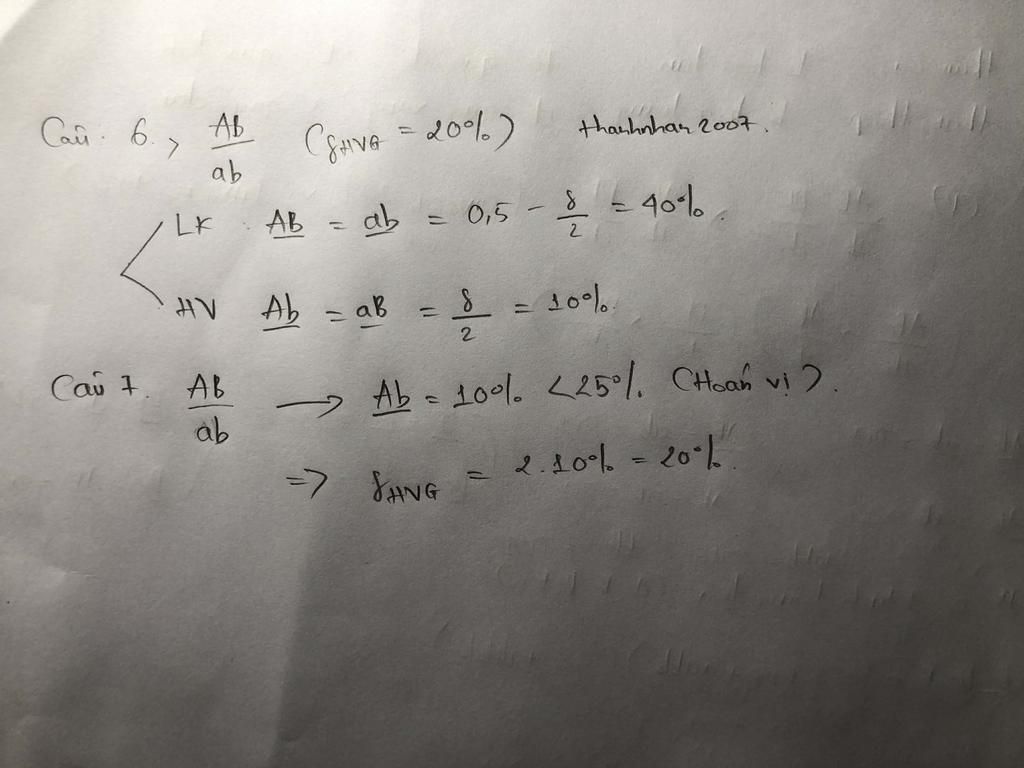 Câu 6, Ab/ab (fHVG = 20%) thanhnhan2007.
LK : AB = ab = 0,5 - f/2 = 40%.
HV Ab = aB = f/2 = 10%.
Câu 7. AB/ab → Ab = 10% < 25%. (Hoán vị).
=> fHVG = 2.10% = 20%.